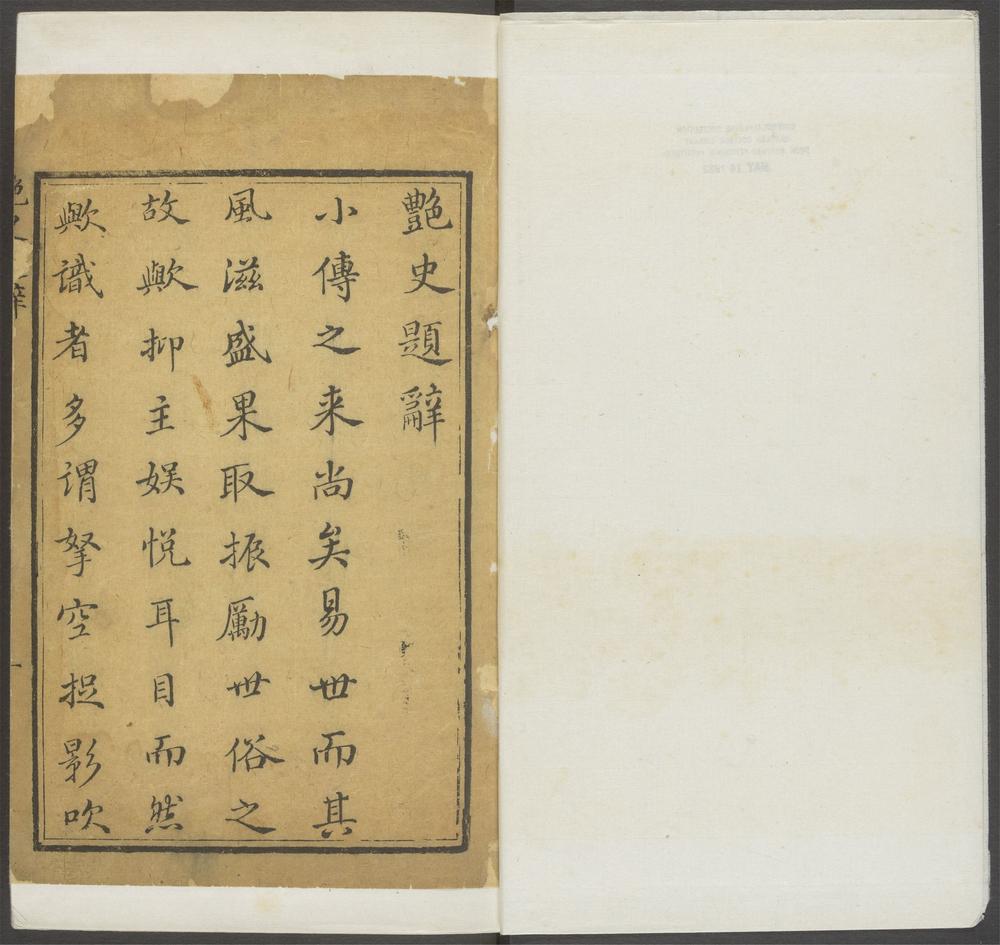 艷史題辭
小傳之来尚矣易世而其
風滋盛果取振厲世俗之
故歟抑主娛悅耳目而然
歟識者多謂拏空捉影吹
MAY 16 1952